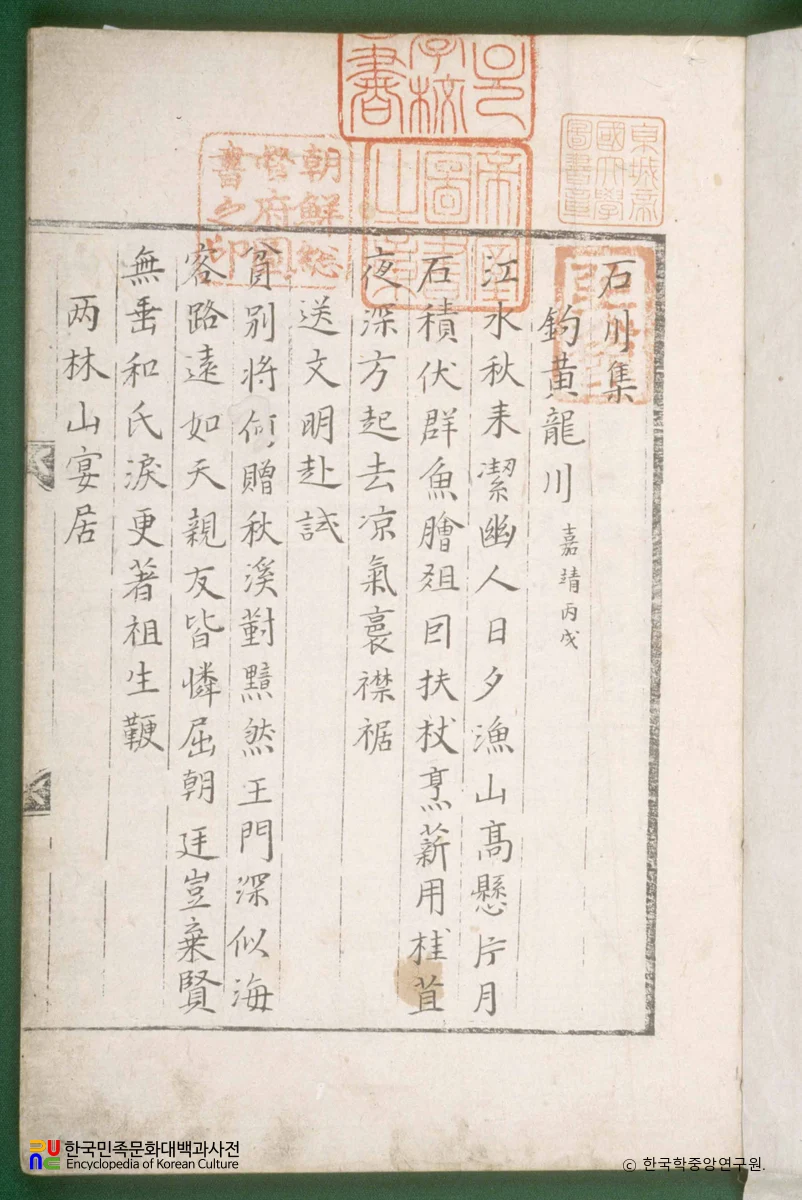 石川集
釣黄龍川 嘉靖丙戌
江水秋来潔幽人日夕漁山髙懸片月
石積伏群魚膾爼囙扶杖烹薪用桂苴
夜深方起去凉氣裛襟裾
送文明赴試
貧別將何贈秋溪對黯然王門深似海
客路遠如天親友皆憐屈朝廷豈棄賢
無垂和氏淚更著祖生鞭
两林山宴居
朝鮮総督府圖書之印
帝室圖書之章
京城帝國大學圖書章
한국민족문화대백과사전
Encyclopedia of Korean Culture
© 한국학중앙연구원.